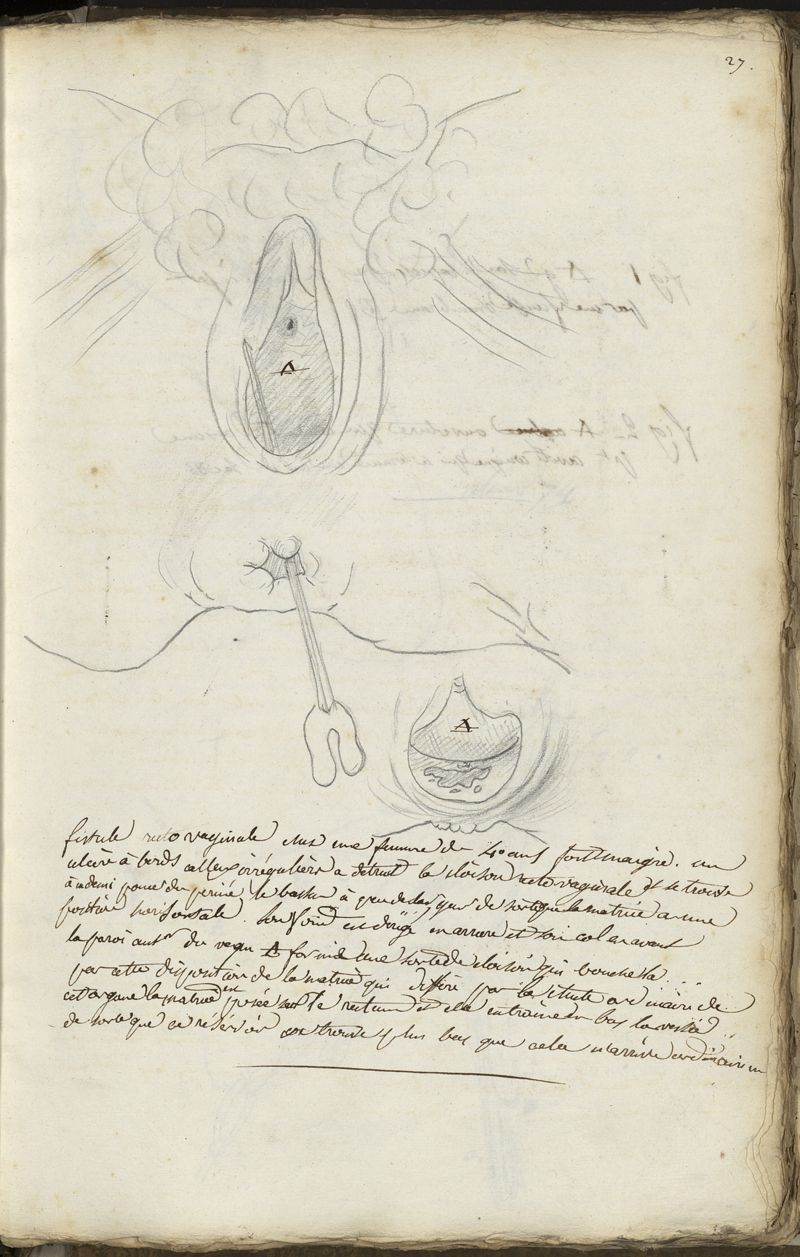 27.
A
A
fistule recto vaginale chez une femme de 40 ans fort maigre. un
ulcère à bords calleux irréguliers a détruit la cloison recto vaginale et se trouve
à un demi pouce du périné le bassin à peu de de sorte que la matrice a une
position horisontale. son fond est dirigé en arrière et son col en avant
la paroi antre du vagin A forme une sorte de cloison qui bouche la
par cette disposition de la matrice qui diffère par la situation ordinaire de
cet organe la matrice est posée sur le rectum et elle entraine en bas la vessie
de sorte que ce réservoir se trouve plus bas que cela n'arrive ordinairem